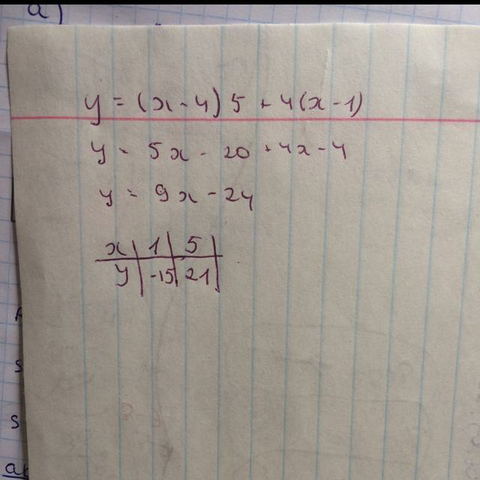 a)
y = (x - 4) 5 + 4(x - 1)
y = 5x - 20 + 4x - 4
y = 9x - 24
x | 1 | 5 |
y | -15 | 21 |